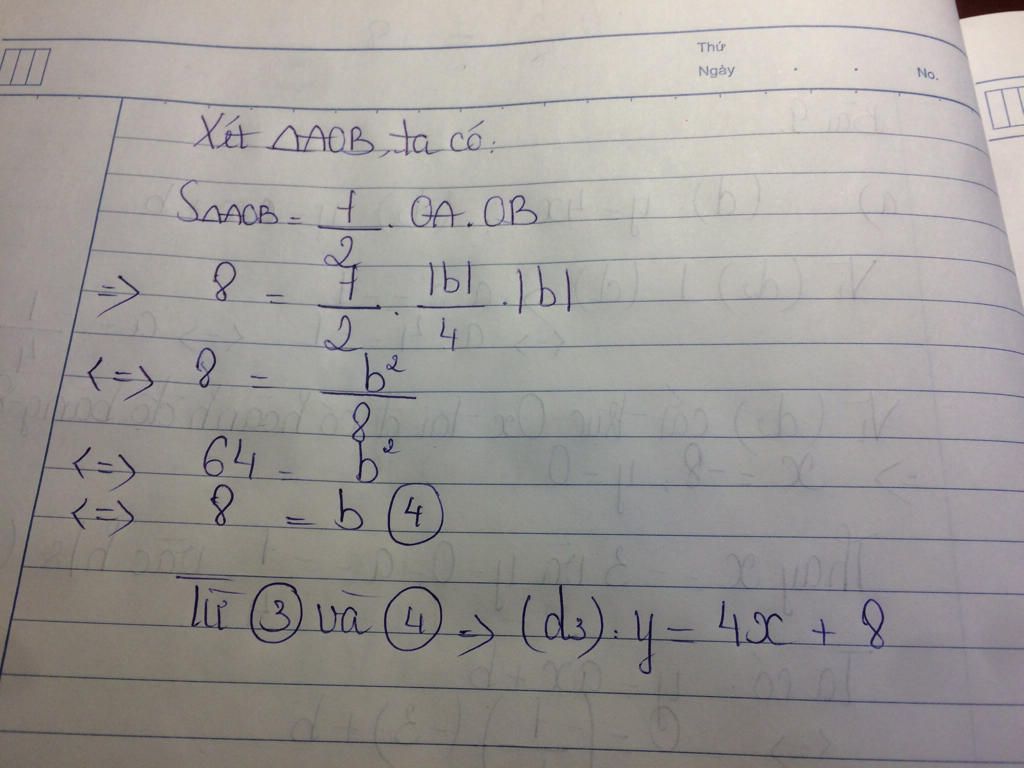 Thứ
Ngày . . No.
Xét ΔAOB, ta có:
SΔAOB = 1/2 . OA . OB
=> 8 = 1/2 . |b|/4 . |b|
<=> 8 = b²/8
<=> 64 = b²
<=> 8 = b ④
Từ ③ và ④ => (d3): y = 4x + 8